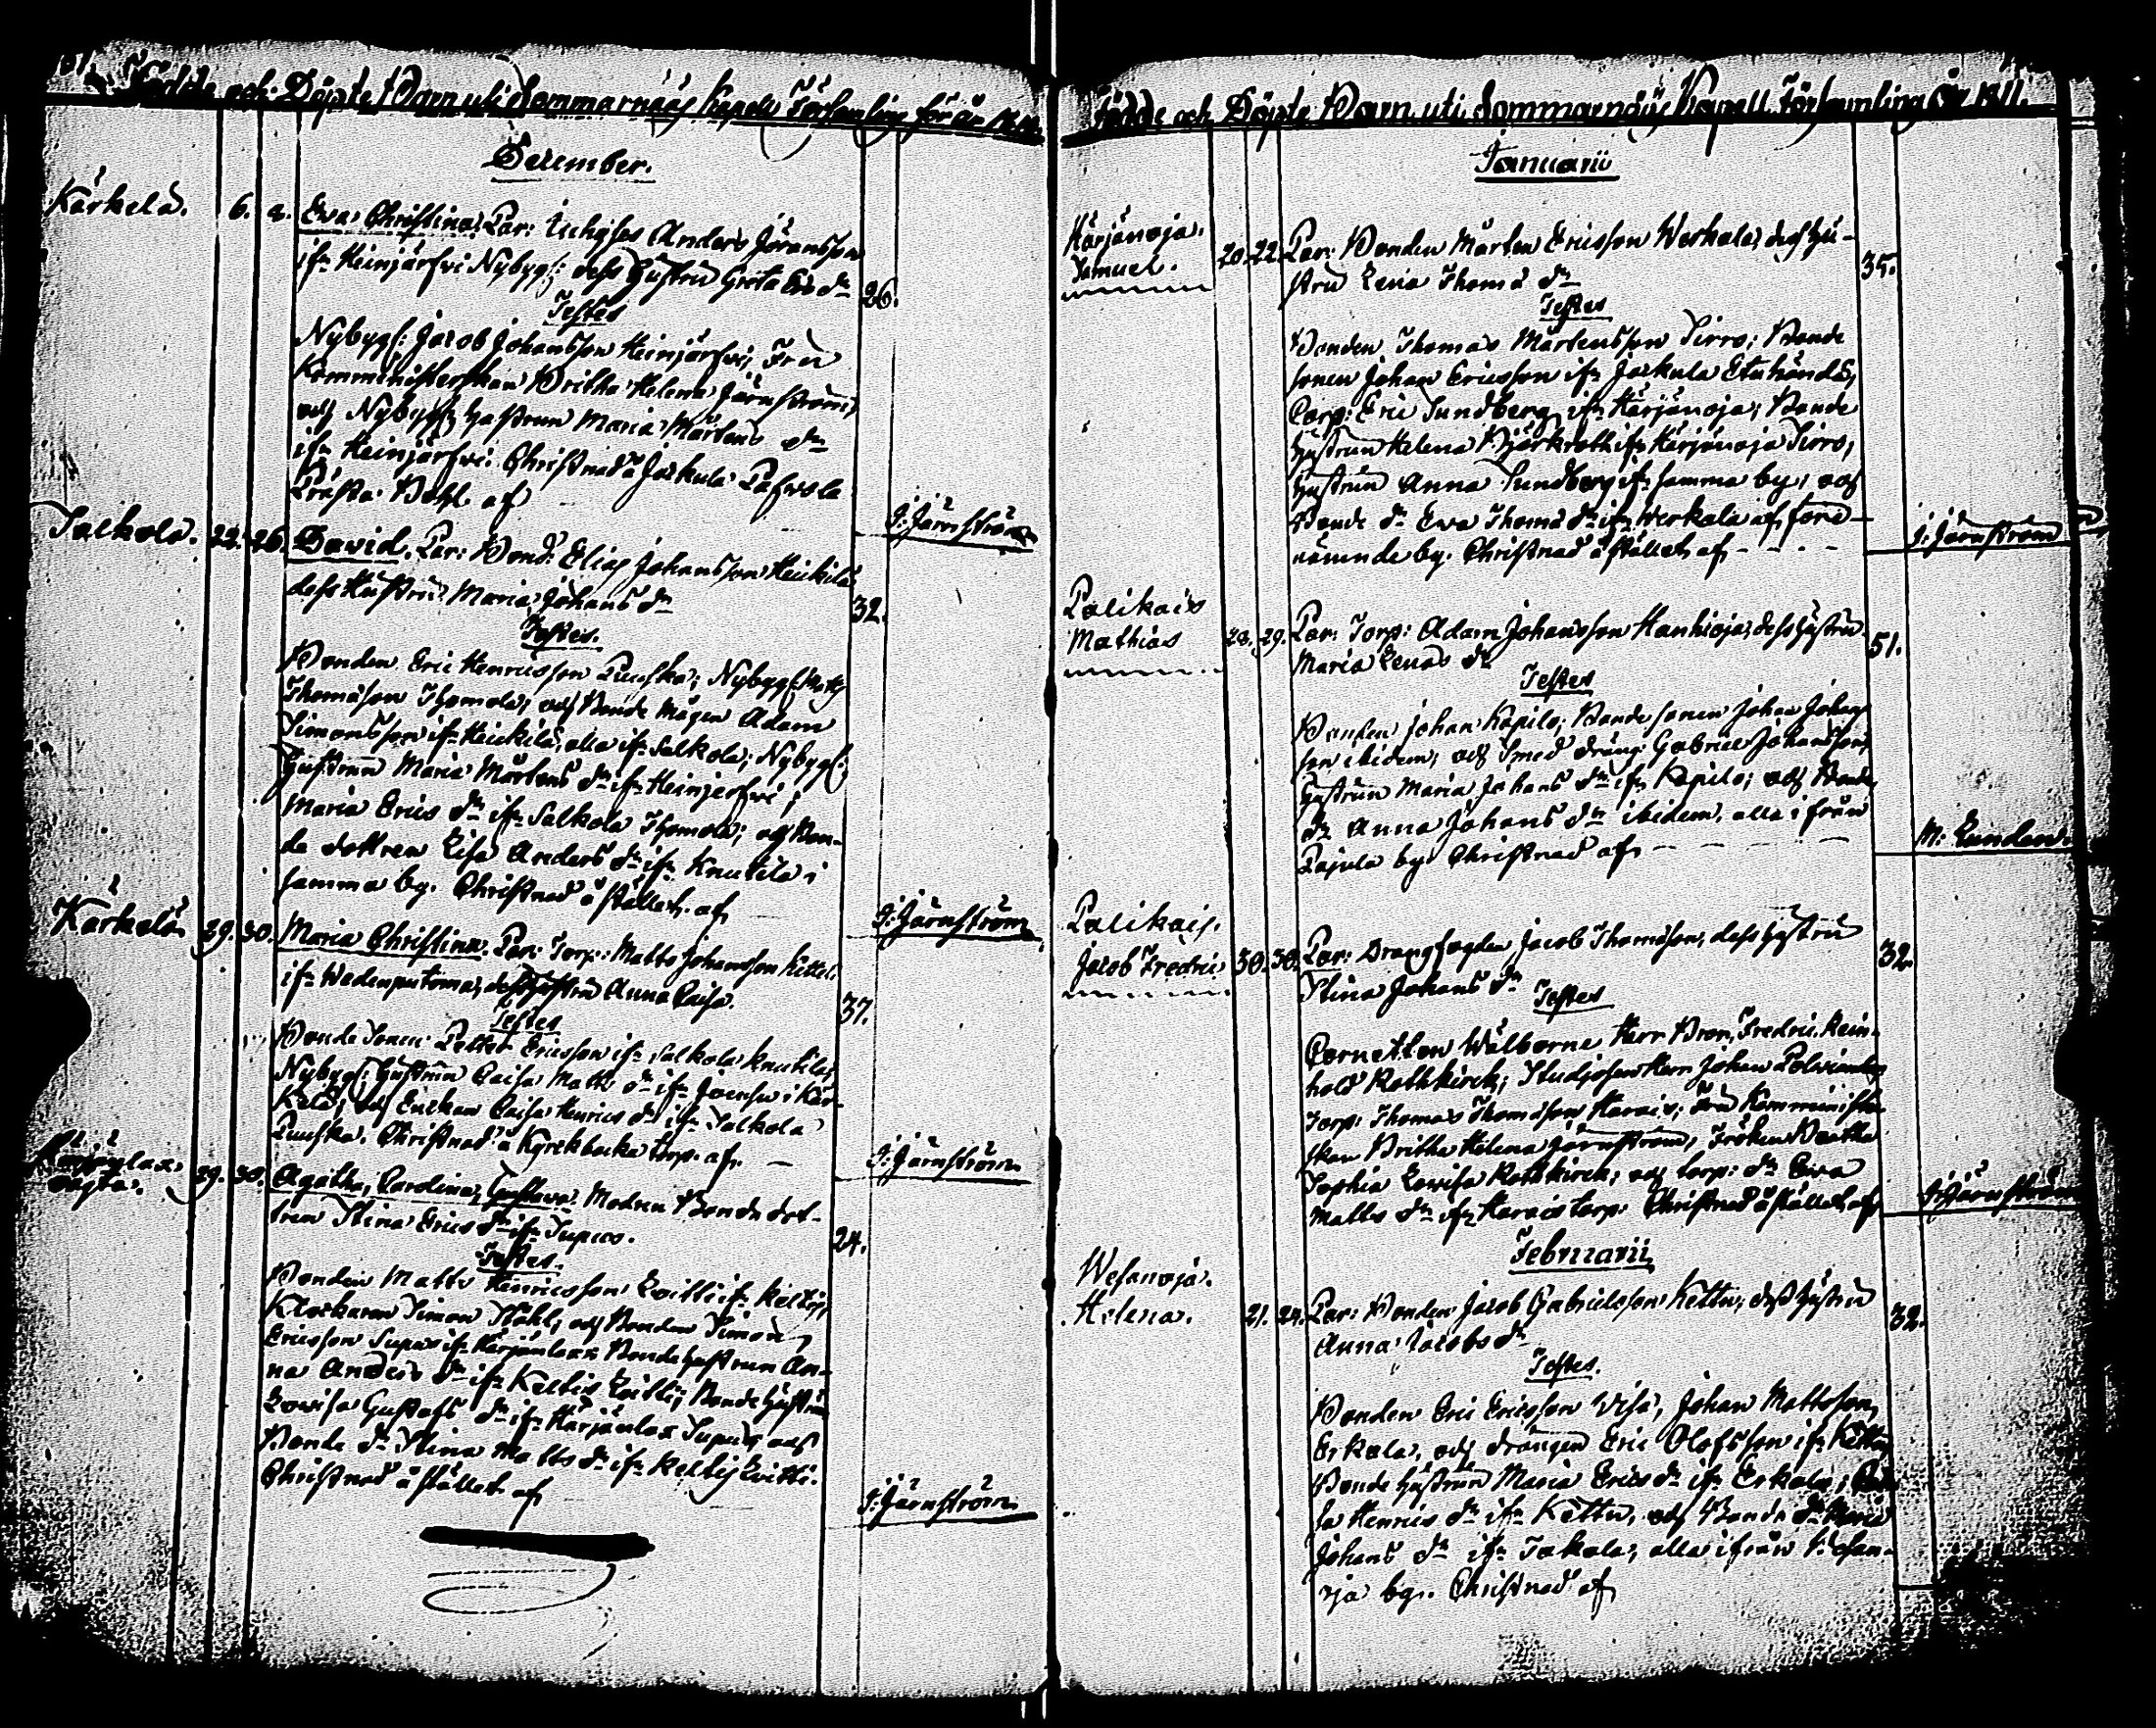 Födde och Döpte Barn uti Sommarnääs Kapell Församling för år
December.
Kärkelä. 6. 8. Eva Christina. Par: Inhyses Anders Jöransson
ifr Heinjärfwi Nybygs: dess Hustru Greta Eric dr 26.
Testes
Nybygs: Jacob Johansson Heinjärfwi; Fru
Komministerskan Britha Helena Järnström;
och Nybygs: hustrun Maria Mårtens dr
ifr Heinjärfwi. Christnad å Jockula
Prästa Bohl af J: Järnström
Salkola. 22. 26. David. Par: Bond: Elias Johansson Heickilä
dess Hustru Maria Johans dr 32.
Testes.
Bonden Eric Henricsson Puuska; Nybygs: Matts
Thomasson Thomola; och Bonde Mågen Adam
Simonsson ifr Heickilä, alla ifr Salkola; Nybygs:
Hustrun Maria Mårtens dr ifr Heinjerfwi;
Maria Erics dr ifr Salkola Thomola; och Bon-
de dottren Lisa Anders dr ifr Knutila i
samma by. Christnad å stället af J: Järnström
Kärkelä 29. 30. Maria Christina. Par: Torp: Matts Johansson
ifr dess Hustru Anna Caisa. 37.
Testes
Bonde Sonen Petter Ericsson ifr Salkola Knutila;
Nybygs: Hustrun Caisa Matts dr ifr i Kär-
kelä; och Enckan Caisa Henrics dr ifr Salkola
Puuska. Christnad å Kyrckbacka torp. af J: Järnström
29. 30. Agatha, Carolina, Gustava. Modren Bonde dot-
tren Stina Erics dr ifr Supus. 24.
Testes.
Bonden Matts Henricsson ifr
Klockaren Simon Ståhl, och Bonden Simon
Ericsson Supus ifr Härjänlax; Bonde hustrun An-
na Anders dr ifr Bonde hustrun
Lowisa Gustafs dr ifr Härjänlax Supus och
Bonde dr Stina Matts dr ifr
Christnad å stället af J: Järnström
Födde och Döpte Barn uti Sommarnääs Kapell Församling År 1811.
Januarii
Härjänoja. Par: Bonden Mårten Ericsson Werkala, dess Hu-
Samuel. 20. 22. stru Lena Thoma dr 35.
Testes
Bonden Thomas Mårtensson Sirro; Bonde
sonen Johan Ericsson ifr Jockula
Corp: Eric Sundberg ifr Härjänoja; Bonde
hustrun Helena Björkroth ifr Härjänoja Sirro,
hustrun Anna Sundberg ifr samma by, och
Bonde dr Eva Thoma dr ifr Werkala af före-
nämnde by. Christnad å stället af J: Järnström
Palikais
Mathias 28. 29. Par: Torp: Adam Johansson Hankioja, dess hustru
Maria dr 51.
Testes
Bonden Johan Kapilo; Bonde sonen Johan Johans
son ibidem; och Smed dräng Gabriel Johansson,
Hustrun Maria Johans dr ifr Kapilo; och Bonde
dr Anna Johans dr ibidem, alla ifrån
Pajula by. Christnad af M: Lunden.
Palikais.
Jacob Fredric 30. 30. Par: Drangfogden Jacob Thomasson, dess hustru
Stina Johans dr 32.
Testes
Cornetten Wälborne Herr Bron, Fredric Rein-
hold Rothkirck; Studiosen Herr Johan
Torp: Thomas Thomasson Harais; Fru Komminister-
skan Britha Helena Järnström, Fröken Beatha
Sophia Lovisa Rothkirck; och torp: dr Ewa
Matts dr ifr Harais torp: Christnad å stället af J: Järnström
Februarii
Wesanoja.
Helena. 21. 24. Par: Bonden Jacob Gabrielsson Kettu, dess Hustru
Anna Jacobs dr 32.
Testes.
Bonden Eric Ericsson Visa, Johan Mattsson
Erkala, och drängen Eric Olofsson ifr Kettu
Bonde hustrun Maria Erics dr ifr Erkala; Cai-
sa Henrics dr ifr Kettu, och Bonde dr Maria
Johans dr ifr Jakala, alla ifrån Wesan-
oja by. Christnad af